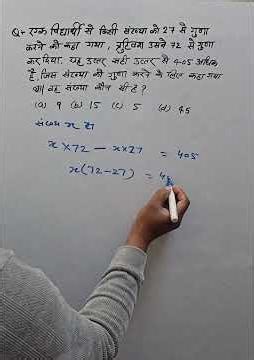 Q→ एक विद्यार्थी से किसी संख्या को 27 से गुणा
करने को कहा गया, त्रुटिवश उसने 72 से गुणा
कर दिया. यह उत्तर सही उत्तर से 405 अधिक
है, जिस संख्या को गुणा करने के लिए कहा गया
था वह संख्या कौन सी है?
(a) 9 (b) 15 (c) 5 (d) 45
संख्या x है
x × 72 – x × 27 = 405
x(72-27) = 4